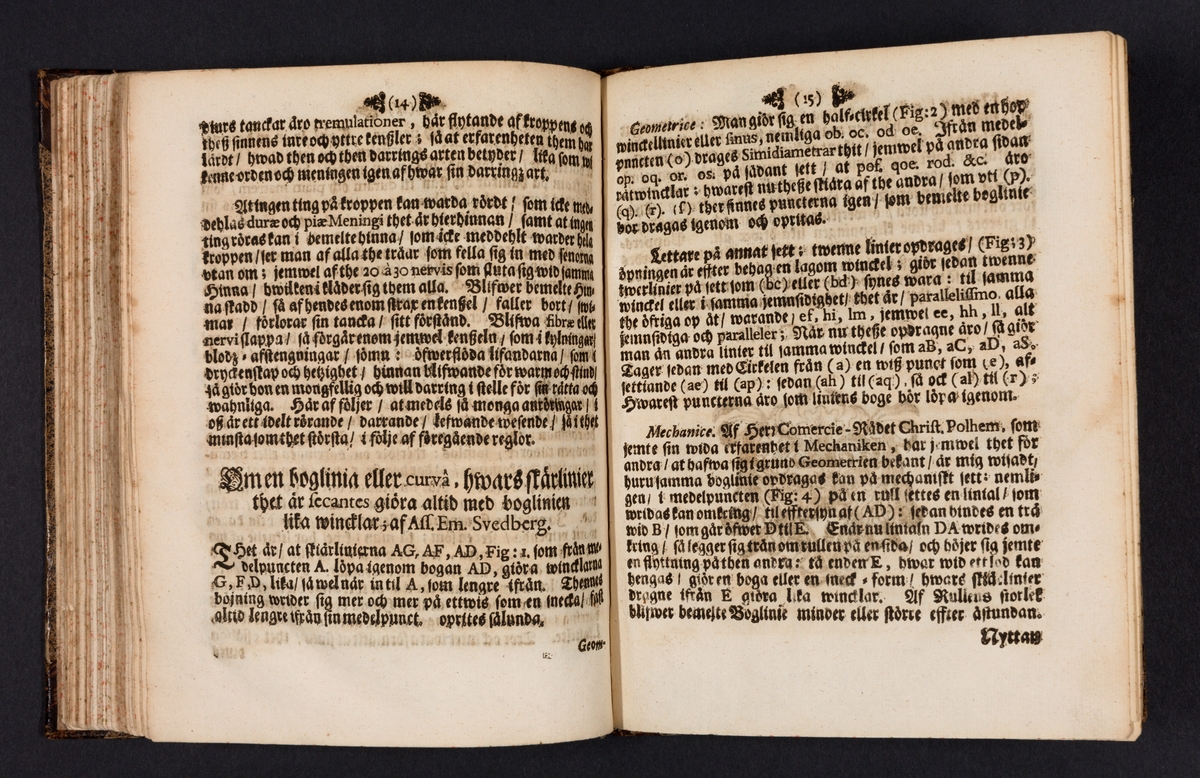 (14)
diurs tanckar äro tremulationer, här flytande af kroppens och
theß sinnens inre och yttre kenßler; så at erfarenheten them har
lärdt/ hwad then och then darrings arten betyder/ lika som wi
kenne orden och meningen igen af hwar sin darringz art.
At ingen ting på kroppen kan warda rördt/ som icke med-
dehlas duræ och piæ Meningi thet är hiernhinnan/ samt at ingen
ting röras kan i bemelte hinna/ som icke meddehlt warder hela
kroppen/ ser man af alla the tråar som fella sig in med senorna
utan om; jemwel af the 20 à 30 nervis som sluta sig wid samma
Hinna/ hwilken i kläder sig them alla. Blifwer bemelte Hin-
na skadd/ så af hendes enom strax en kenßel/ faller bort/ swi-
mar/ förlorar sin tancka/ sitt förstånd. Blifwa fibræ eller
nervi slappa/ så förgår enom jemwel kenßeln/ som i kylningar/
blodz-afstengningar/ sömn: öfwerstöda lifandarna/ som i
dryckenskap och hetzighet/ hinnan blifwande för warm och stind/
så giör hon en mongfellig och will darring i stelle för sin rätta och
wahnliga. Här af följer/ at medels så monga anröringar/ i
oß är ett idelt rörande/ darrande/ lefwande wesende/ så i thet
minsta som thet största/ i följe af föregående reglor.
Om en boglinia eller curvâ, hwars skärlinier
thet är secantes giöra altid med boglinien
lika wincklar; af Ass. Em. Svedberg.
THet är/ at skiärlinierna AG, AF, AD, Fig: 1. som från me-
delpuncten A. löpa igenom bogan AD, giöra wincklarna
G, F, D, lika/ så wel när in til A, som lengre ifrån. Thennes
böjning wrider sig mer och mer på ettwis som en snecka/ fast
altid lengre ifrån sin medelpunct. oprites sålunda.
Geom-
(15)
Geometrice: Man giör sig en half-cirkel (Fig: 2) med en hop
winckellinier eller sinus, nemliga ob. oc. od oe. Ifrån medel-
puncten (o) drages Simidiametrar thit/ jemwel på andra sidan
op. oq. or. os. på sådant sett/ at pof. qoe. rod. &c. äro
rätwincklar: hwarest nu theße skiära af the andra/ som uti (p).
(q). (r). (s) ther finnes puncterna igen/ som bemelte boglinie
bör dragas igenom och opritas.
Lettare på annat sett: twenne linier opdrages/ (Fig: 3)
öpningen är effter behag en lagom winckel; giör sedan twenne
twerlinier på sett som (bc) eller (bd) synes wara: til samma
winckel eller i samma jemnsidighet/ thet är/ parallelissmo. alla
the öfriga op åt/ warande/ ef, hi, lm, jemwel ee, hh, ll, alt
jemnsidiga och paralleler; När nu theße opdragne äro/ så giör
man än andra linier til samma winckel/ som aB, aC, aD, aS.
Tager sedan med Cirkelen från (a) en wiß punct som (e), af-
settiande (ae) til (ap): sedan (ah) til (aq), så ock (al) til (r);
Hwarest puncterna äro som liniens boge bör löpa igenom.
Mechanice. Af Herr Comercie-Rådet Christ. Polhem, som
jemte sin wida erfarenhet i Mechaniken, har jemwel thet för
andra/ at hafwa sig i grund Geometrien bekant/ är mig wisadt/
huru samma boglinie opdragas kan på mechaniskt sett: nemli-
gen/ i medelpuncten (Fig: 4) på en rull settes en linial/ som
wridas kan omkring/ til effterfyn af (AD): sedan bindes en trå
wid B/ som går öfwer D til E. Enär nu linialn DA wrides om-
kring/ så legger sig trån om rullen på en sida/ och höjer sig jemte
en flyttning på then andra: tå enden E, hwar wid ett lod kan
hengas/ giör en boga eller en sneck-form/ hwars skiä: linier
dragne ifrån E giöra lika wincklar. Af Rullens storlek
blifwer bemelte Boglinie minder eller större effter åstundan.
Nyttan